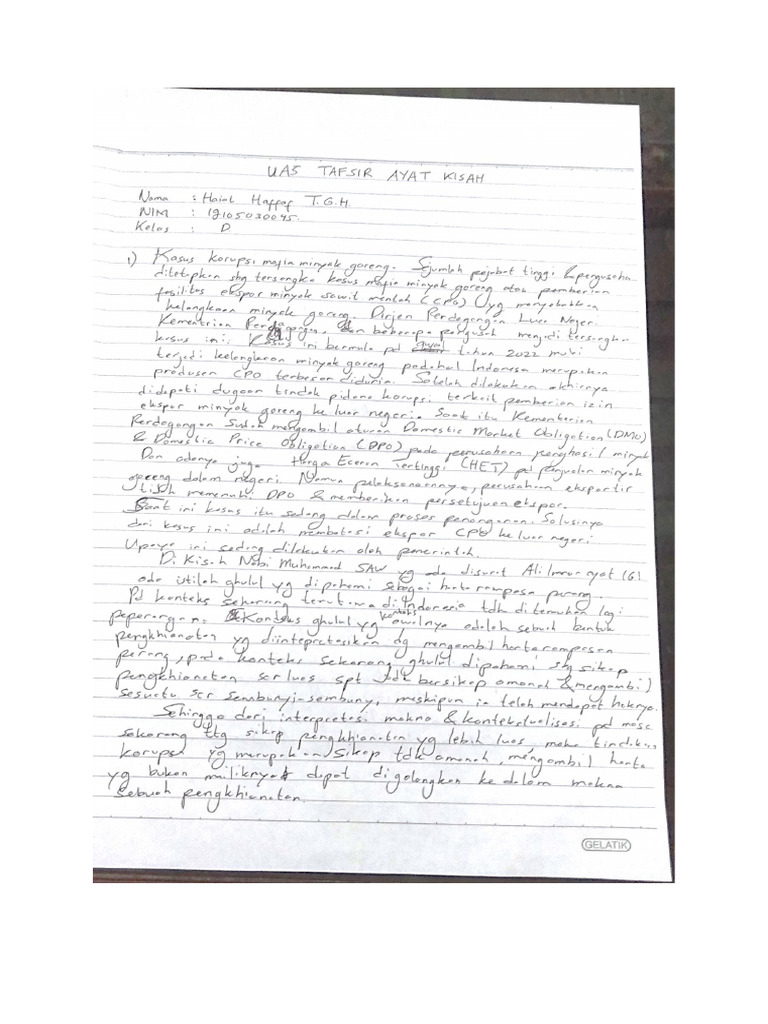 UAS TAFSIR AYAT KISAH
Nama : Haial Haffaf T.G.H.
NIM : 19105030095
Kelas : D
1) Kasus korupsi mafia minyak goreng. Sejumlah pejabat tinggi & pengusaha
ditetapkan sbg tersangka kasus mafia minyak goreng atau pemberian
fasilitas ekspor minyak sawit mentah (CPO) yg menyebabkan
kelangkaan minyak goreng. Dirjen Perdagangan Luar Negeri
Kementrian Perdagangan, dan beberapa pengusah menjadi tersangka
kasus ini. Kasus ini bermula pd awal tahun 2022 mulai
terjadi kelangkaan minyak goreng padahal Indonesia merupakan
produsen CPO terbesar didunia. Setelah dilakukan akhirnya
didapati dugaan tindak pidana korupsi terkait pemberian izin
ekspor minyak goreng ke luar negeri. Saat itu Kementerian
Perdagangan sudah mengambil aturan Domestic Market Obligation (DMO)
& Domestic Price Obligation (DPO) pada perusahaan penghasil minyak
Dan adanya juga Harga Eceran Tertinggi (HET) pd penjualan minyak
goreng dalam negeri. Namun pelaksanaannya, perusahaan eksportir
tidak memenuhi DPO & memberikan persetujuan ekspor.
Saat ini kasus itu sedang dalam proses penanganan. Solusinya
dari kasus ini adalah membatasi ekspor CPO ke luar negeri
Upaya ini sedang dilakukan oleh pemerintah.
Di Kisah Nabi Muhammad SAW yg ada disurat Ali Imran ayat 161
ada istilah ghulul yg dipahami sebagai harta rampasa perang.
Pd konteks sekarang terutama di Indonesia tdk ditemukan lagi
peperangan. Konteks ghulul yg awalnya adalah sebuah bentuk
konteks
pengkhianatan yg diintepretasikan dg mengambil harta rampasan
perang, pada konteks sekarang ghulul dipahami sbg sikap
pengkhianatan scr luas spt tdk bersikap amanah & mengambil
sesuatu scr sembunyi-sembuny, meskipun ia telah mendapat haknya.
Sehingga dari interpretasi makna & kontekstualisasi pd masa
sekarang ttg sikap pengkhianatan yg lebih luas, maka tindakan
korupsi yg merupakan sikap tdk amanah, mengambil harta
yg bukan miliknya dapat digolongkan ke dalam makna
sebuah pengkhianatan.
GELATIK